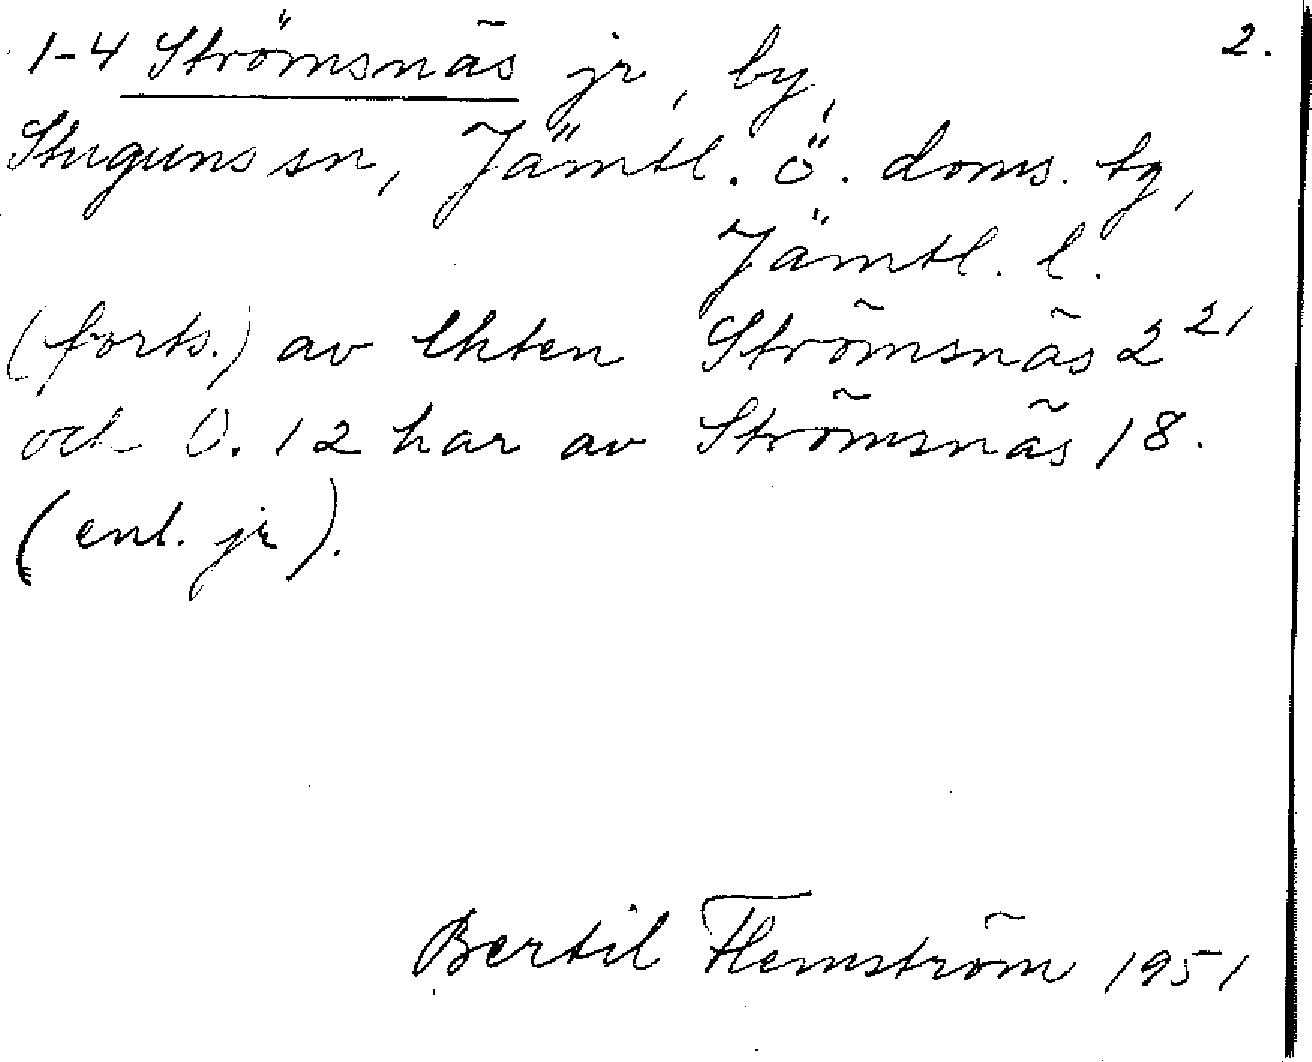 1-4 Strömsnäs jr, by, 2.
Stuguns sn, Jämtl. ö. doms. tg,
Jämtl. l.
(forts.) av Ekten Strömsnäs 2 21
och O. 12 har av Strömsnäs 18.
(enl. jr).
Bertil Flemström 1951